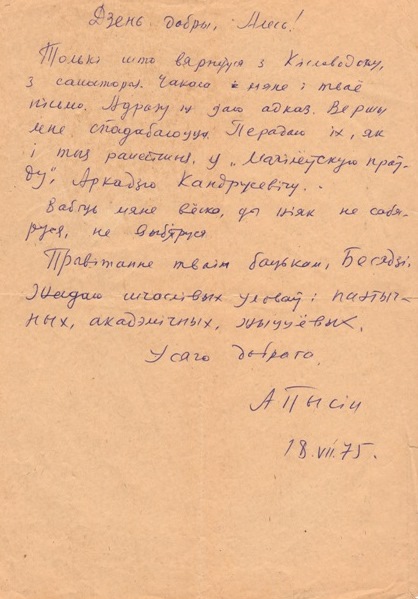 Дзень добры, Алесь!
Толькі што вярнуўся з Кіславодску,
з санаторыя. Чакала мяне і тваё
пісьмо. Адразу ж даю адказ. Вершы
мне спадабаліся. Перадаю іх, як
і тыя ранейшыя, у „Магілёўскую праў-
ду", Аркадзю Кандрусевічу.
Вабіць мяне вёска, ды ніяк не сабя-
руся, не выберуся
Прывітанне тваім бацькам, Бесядзі.
Жадаю шчаслівых уловаў і паэтыч-
ных, акадэмічных, жыццёвых.
Усяго добрага.
А Пысін
18.VII.75.